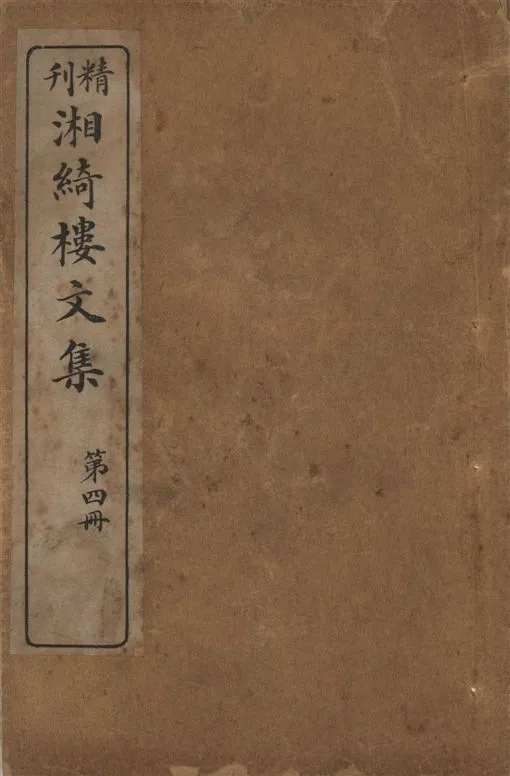 精刊
湘綺樓文集
第四冊